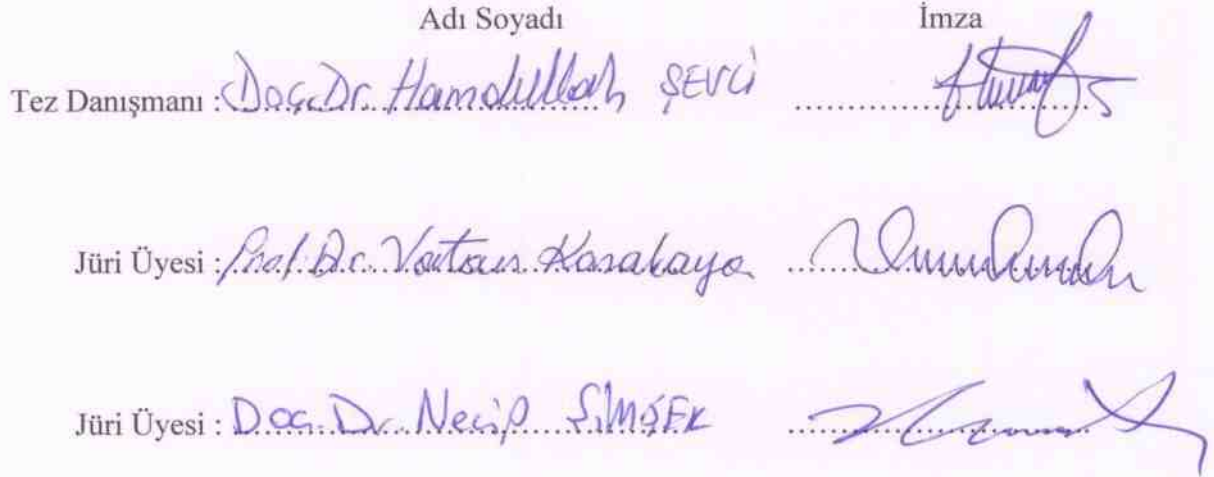 Adı Soyadı İmza
Tez Danışmanı : Doç. Dr. Hamdullah ŞEVLİ
Jüri Üyesi : Prof. Dr. Vatan Karakaya
Jüri Üyesi : Doç. Dr. Necip ŞİMŞEK